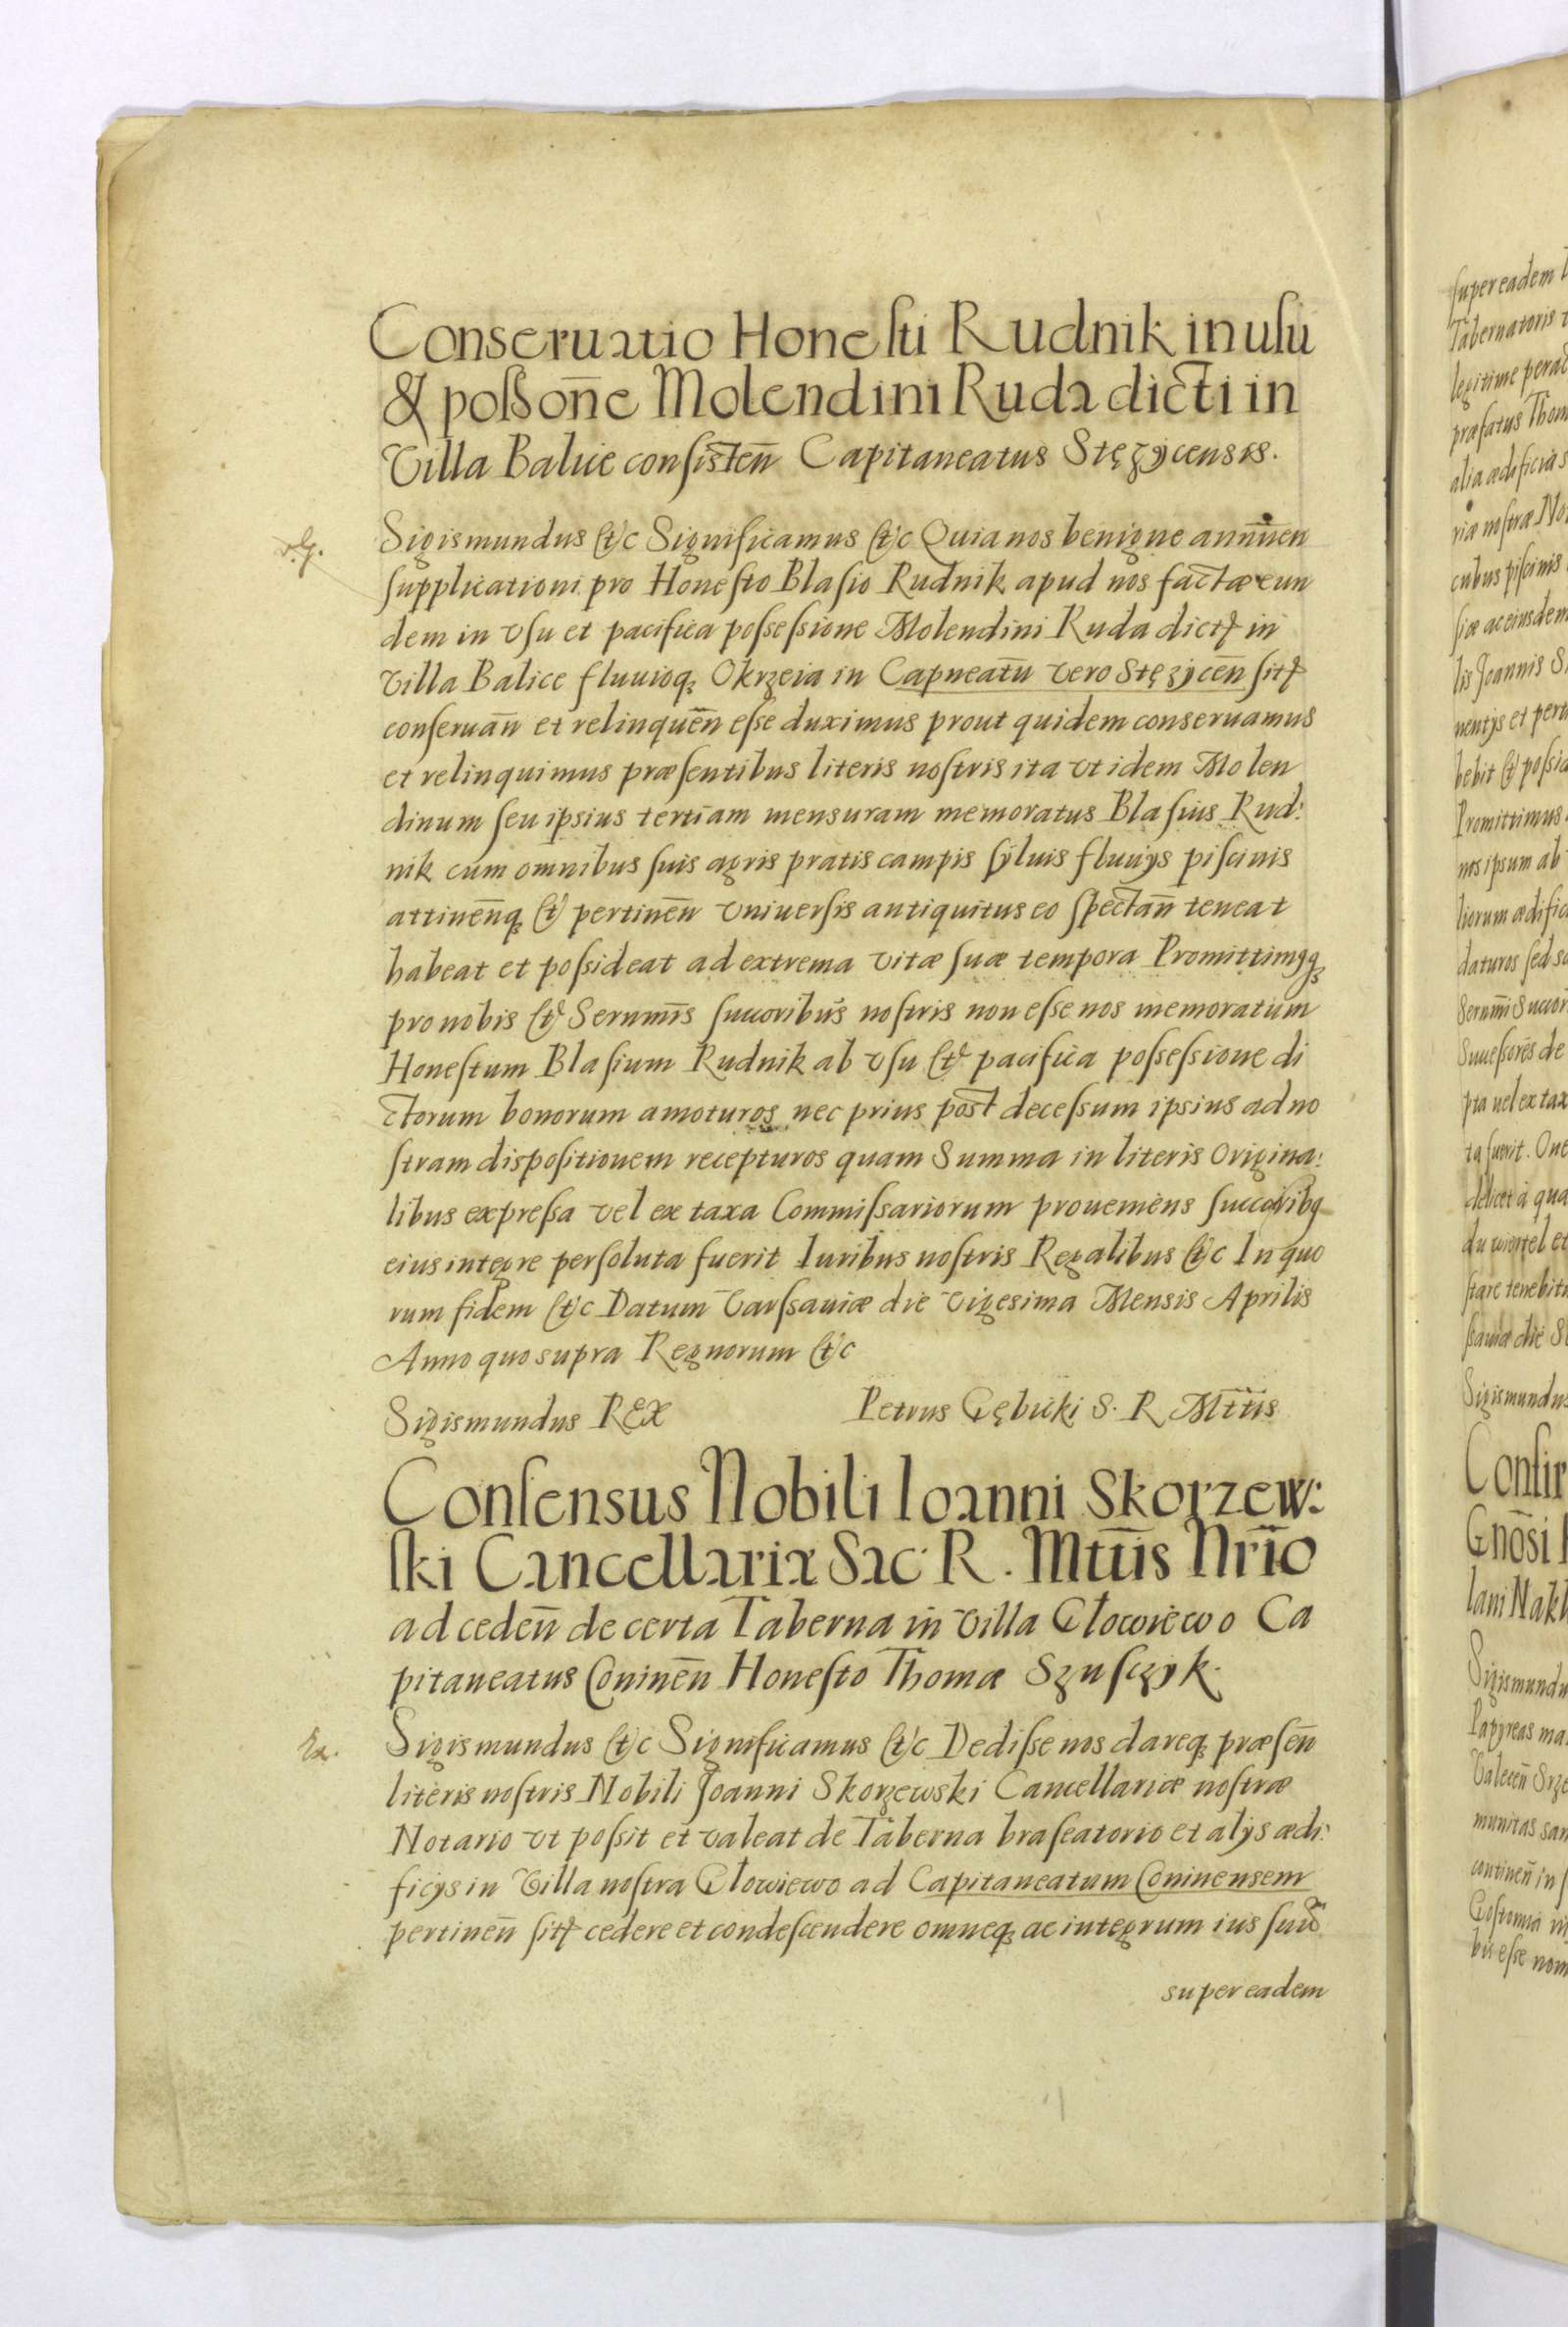 Conseruatio Honesti Rudnik in usu
& possōne Molendini Ruda dicti in
Villa Balice consisten̄ Capitaneatus Stężycensis.
Sigismundus &c Significamus &c Quia nos benigne annuen̄
supplicationi pro Honesto Blasio Rudnik apud nos factæ eun
dem in vsu et pacifica possessione Molendini Ruda dictꝭ in
Villa Balice fluuioqꝫ Okrzeia in Capneatū vero Stężycen̄ sitꝭ
conseruan̄ et relinquen̄ esse duximus prout quidem conseruamus
et relinquimus præsentibus literis nostris ita vt idem Molen
dinum seu ipsius tertiam mensuram memoratus Blasius Rud:
nik cum omnibus suis agris pratis campis syluis fluuijs piscinis
attinen̄qꝫ & pertinen̄ vniuersis antiquitus eo spectan̄ teneat
habeat et possideat ad extrema vitæ suæ tempora Promittimꝰqꝫ
pro nobis & Serenīs succoribus nostris non esse nos memoratum
Honestum Blasium Rudnik ab vsu & pacifica possessione di
ctorum bonorum amoturos nec prius post decessum ipsius ad no
stram dispositionem recepturos quam Summa in literis Origina:
libus expressa vel ex taxa Commissariorum proueniens succoribꝫ
eius integre persoluta fuerit Iuribus nostris Regalibus &c In quo
rum fidem &c Datum Varssauiæ die Vigesima Mensis Aprilis
Anno quo supra Regnorum &c
Sigismundus REX Petrus Gębicki S. R. Mttis
Consensus Nobili Ioanni Skorzew:
ski Cancellariæ Sac: R. Mttis Nrio
ad ceden̄ de certa Taberna in Villa Głowiewo Ca
pitaneatus Coninen̄ Honesto Thomæ Szusczyk.
Sigismundus &c Significamus &c Dedisse nos dareqꝫ præsen̄
literis nostris Nobili Joanni Skorzewski Cancellariæ nostræ
Notario vt possit et valeat de Taberna braseatorio et alijs ædi:
ficijs in Villa nostra Głowiewo ad Capitaneatum Coninensem
pertinen̄ sitꝭ cedere et condescendere omneqꝫ ac integrum ius suū
super eadem
super eadem
Tabernatoris
legitime
præfatus Thom
alia ædificia
riæ nostræ
cubus piscinis
lis Joannis
Promittimus
nos ipsum ab
daturos sed
Sigismundus
Confir
Gnōsi
lani Nakl
Sigismundu
Papyreas